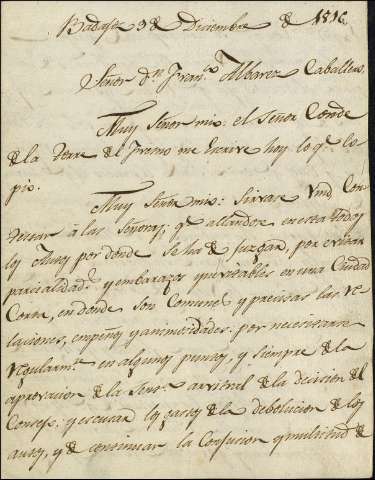 Badajoz 9 de Diciembre de 1816
Señor dn. Franco. Albarez Caballero.
Muy Señor mio: el Señor Conde
de la Torre del Fresno me escrive hoy lo qe. co-
pio.
Muy Señor mio: Sirvase Vmd. Con
textar à las Señoras; qe. allandose en esta Todos
los Autos por donde se ha de juzgar, por evitar
parcialidads. y embarazos inevitables en una Ciudad
Corta, en donde son Comunes y precisas las re
laciones, empeños y animosidades. por necesitarse
regularmte. en algunos puntos, y siempre de la
aprovacion de la Sentª. arvitral de la decision del
Consejo: y escusar los gastos de la debolucion de los
autos, y de continuar la Confusion y multitud de